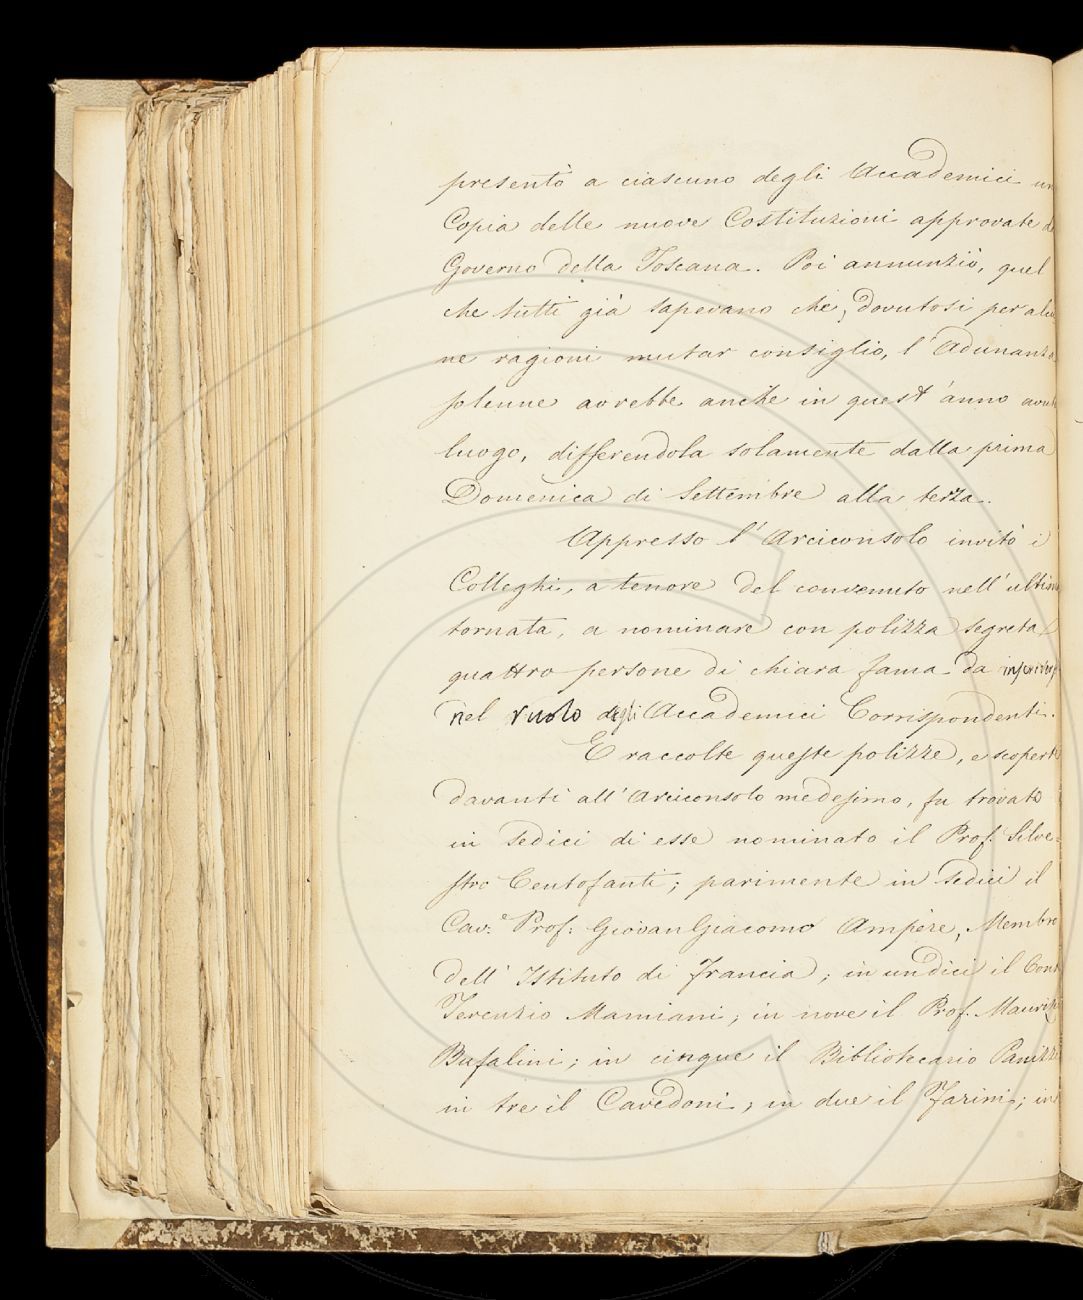 presentò a ciascuno degli Accademici un
Copia delle nuove Costituzioni approvate d
Governo della Toscana. Poi annunziò, quel
che tutti già sapevano che, dovutosi per alcu-
ne ragioni mutar consiglio, l'Adunanza
solenne avrebbe anche in quest'anno avut
luogo, differendola solamente dalla prima
Domenica di Settembre alla terza.
Appresso l'Arciconsolo invitò i
Colleghi, a tenore del convenuto nell'ultim
tornata, a nominare con polizza segreta
quattro persone di chiara fama da inscriver
nel ruolo degli Accademici Corrispondenti.
E raccolte queste polizze, e scoperte
davanti all'Arciconsolo medesimo, fu trovato
in sedici di esse nominato il Prof. Silve-
stro Centofanti; parimente in sedici il
Cav.e Prof: Giovan Giacomo Ampère, Membro
dell'Istituto di Francia; in undici il Cont
Terenzio Mamiani; in nove il Prof. Maurizi
Bufalini; in cinque il Bibliotecario Panizzi
in tre il Cavedoni; in due il Farini; in